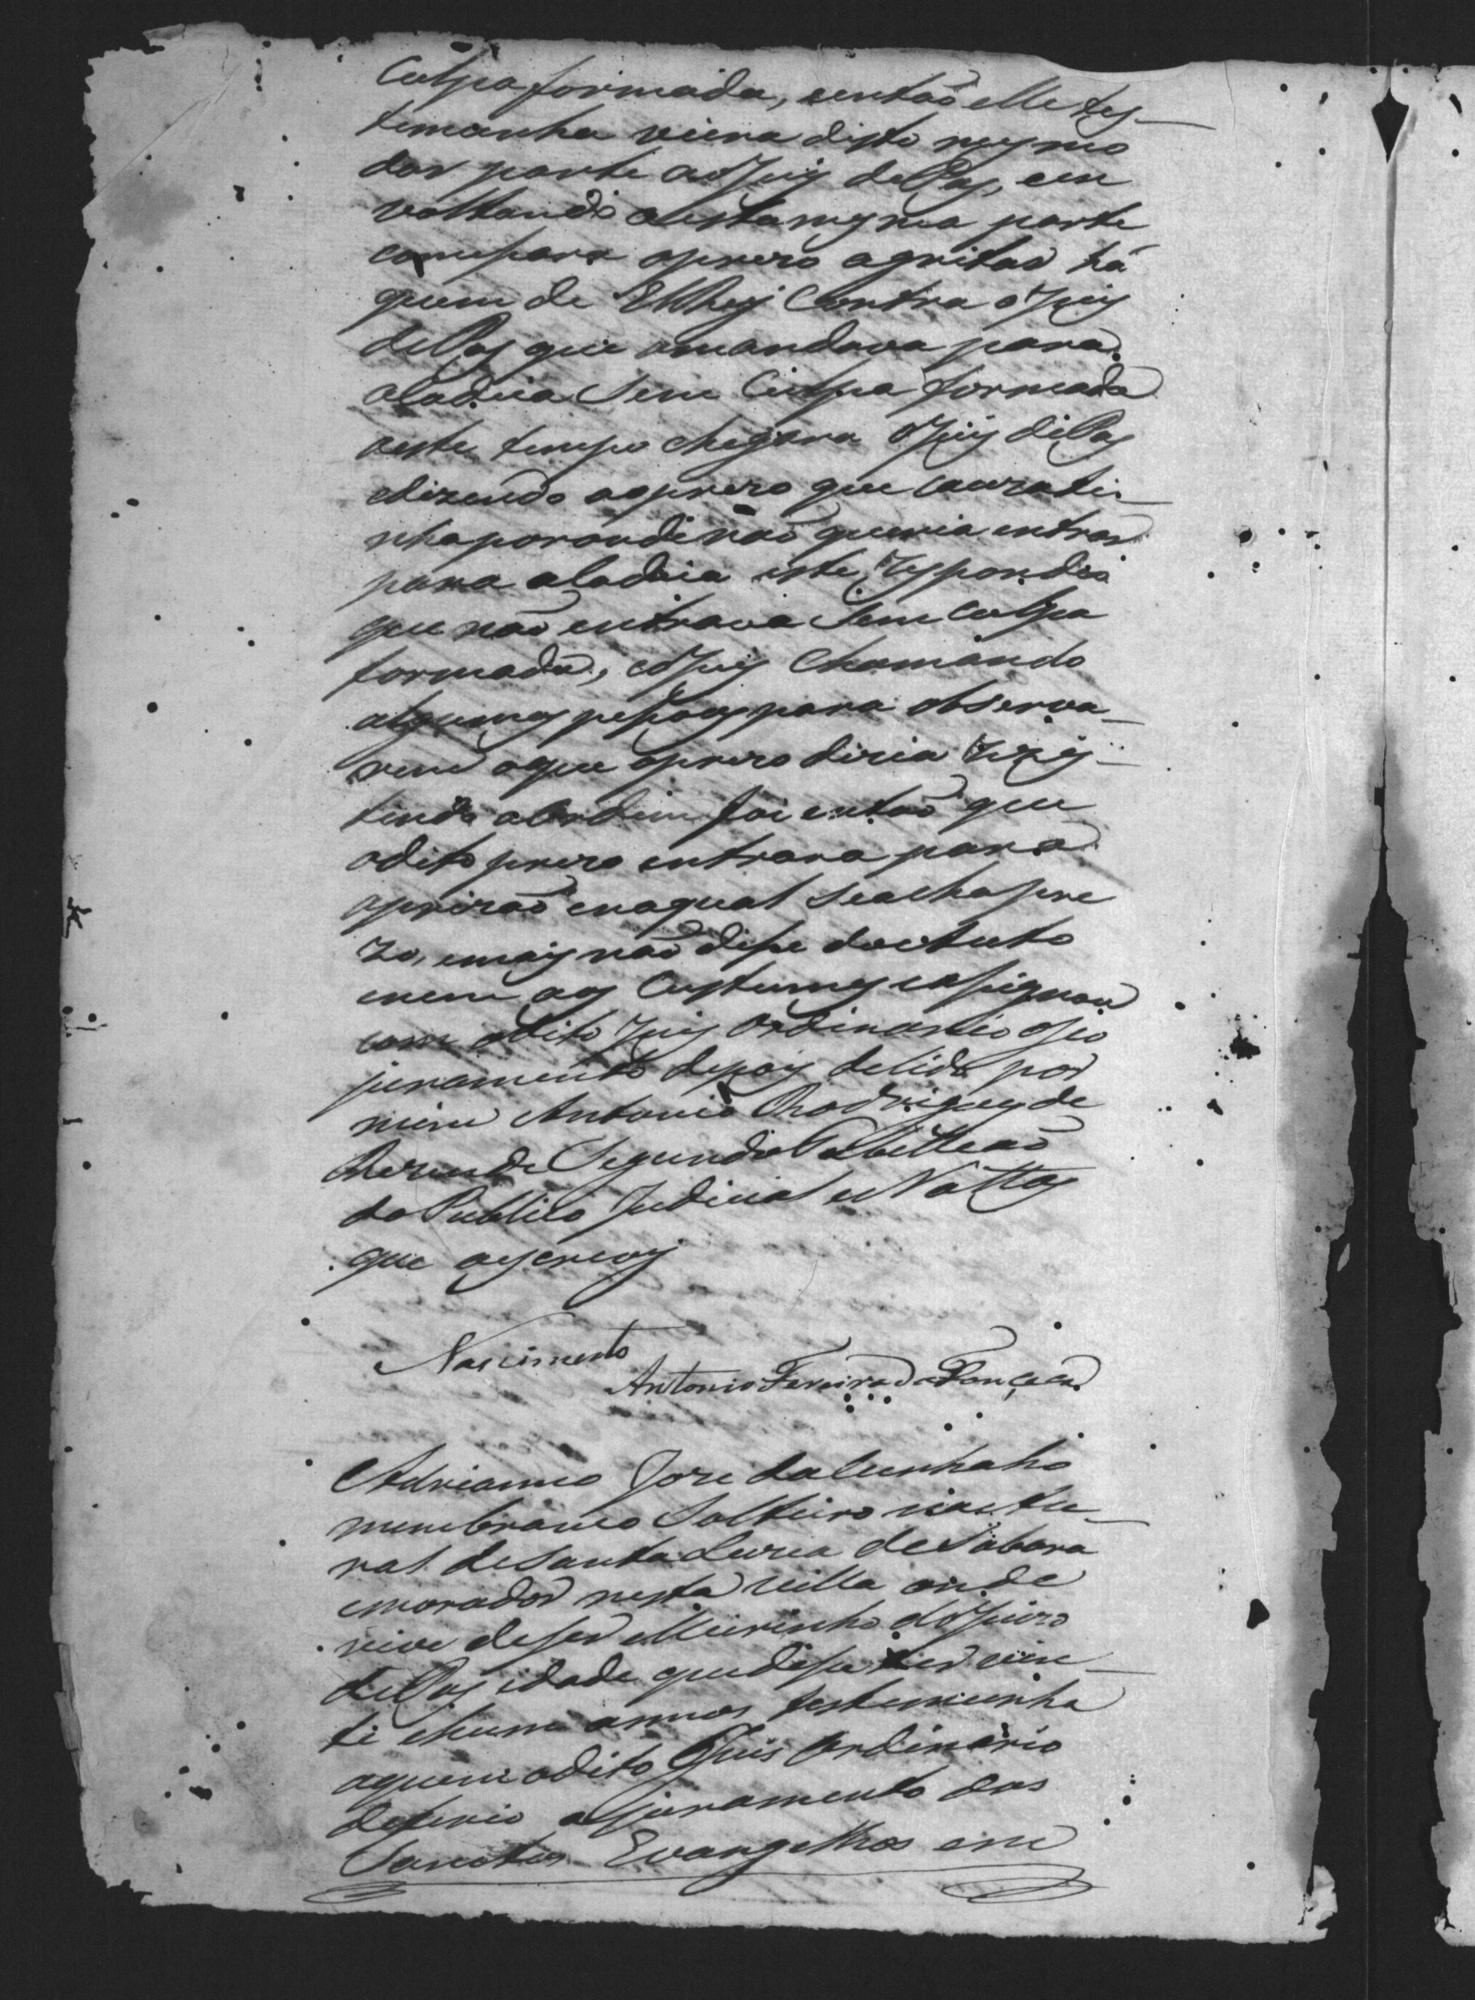 Culpa formada, entaõ elle tes-
temunha viera disto mesmo
dar parte aoJuis dePas, em
voltando a esta mesma parte
comesara opreso agritar há
quem de ElRey Contra oJuis
dePas que omandava para
aCadeia Sem Culpa formada
neste tempo chegara oJuis dePas
dizendo aopreso que cauza ti-
nha por onde naõ queria entrar
para aCadeia este respondeo
que naõ entrava Sem Culpa
formada, eoJuis Chamando
algumas pesoas para observa-
rem oque opreso dizia rezis-
tindo a Ordem foi entaõ que
odito prezo entrara para
aprizaõ enaqual Seacha pre
zo, emais naõ dise doctuto
enem aos Custumes easignou
com odito Juis Ordinario oseo
juramento depois delido por
mim Antonio Rodrigues de
Rezende Segundo Tabelleaõ
do Publico Judicial e Nottas
que oescrevy
Nascimento
Antonio Fereira da Fonceca
Adrianno Joze daCunha ho
mem branco Solteiro natu-
ral de Santa Luzia de Sabara
emorador nesta Villa onde
vive deser Meirinho doJuizo
dePas idade que dise ter vin-
te ehum annos testemunha
aquem odito Juis Ordinario
deferio ojuramento dos
Sanctos Evangelhos em